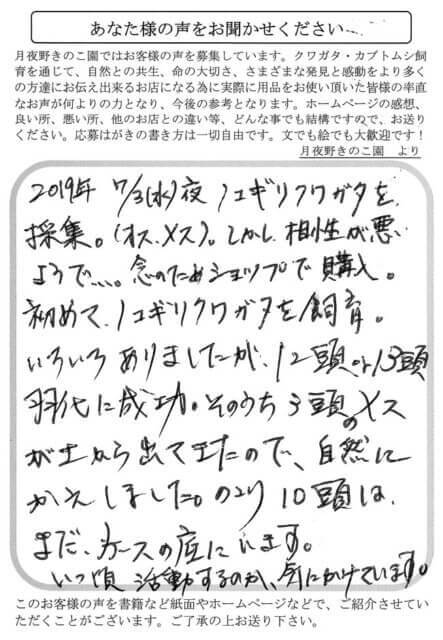 あなた様の声をお聞かせください
月夜野きのこ園ではお客様の声を募集しています。クワガタ・カブトムシ飼
育を通じて、自然との共生、命の大切さ、さまざまな発見と感動をより多く
の方達にお伝え出来るお店になる為に実際に用品をお使い頂いた皆様の率直
なお声が何よりの力となり、今後の参考となります。ホームページの感想、
良い所、悪い所、他のお店との違い等、どんな事でも結構ですので、お送り
ください。応募はがきの書き方は一切自由です。文でも絵でも大歓迎です！
月夜野きのこ園 より
2019年 7/3(水)夜 ノコギリクワガタを
採集。(オス、メス)。しかし相性が悪い
ようで、、、。念のためショップで購入。
初めて、ノコギリクワガタを飼育。
いろいろありましたが、12頭 13頭
羽化に成功。そのうち3頭のメス
が土から出てきたので、自然に
かえしました。のこり10頭は、
まだ、ケースの底にいます。
いつ頃 活動するのか、気にかけています。
このお客様の声を書籍など紙面やホームページなどで、ご紹介させてい
ただくことがございます。ご了承の上お送り下さい。